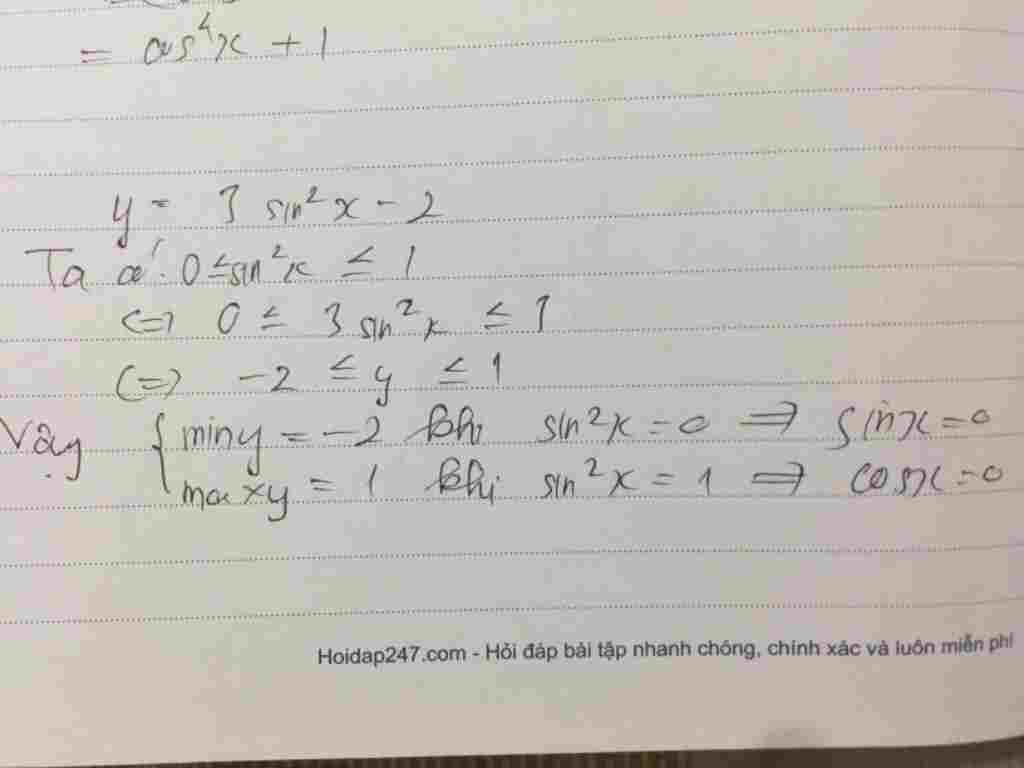 = cos⁴x + 1
y = 3 sin²x - 2
Ta có: 0 ≤ sin²x ≤ 1
(=) 0 ≤ 3 sin²x ≤ 1
(=) -2 ≤ y ≤ 1
Vậy { min y = -2 khi sin²x = 0 => sin x = 0
max y = 1 khi sin²x = 1 => cos x = 0
Hoidap247.com - Hỏi đáp bài tập nhanh chóng, chính xác và luôn miễn phí